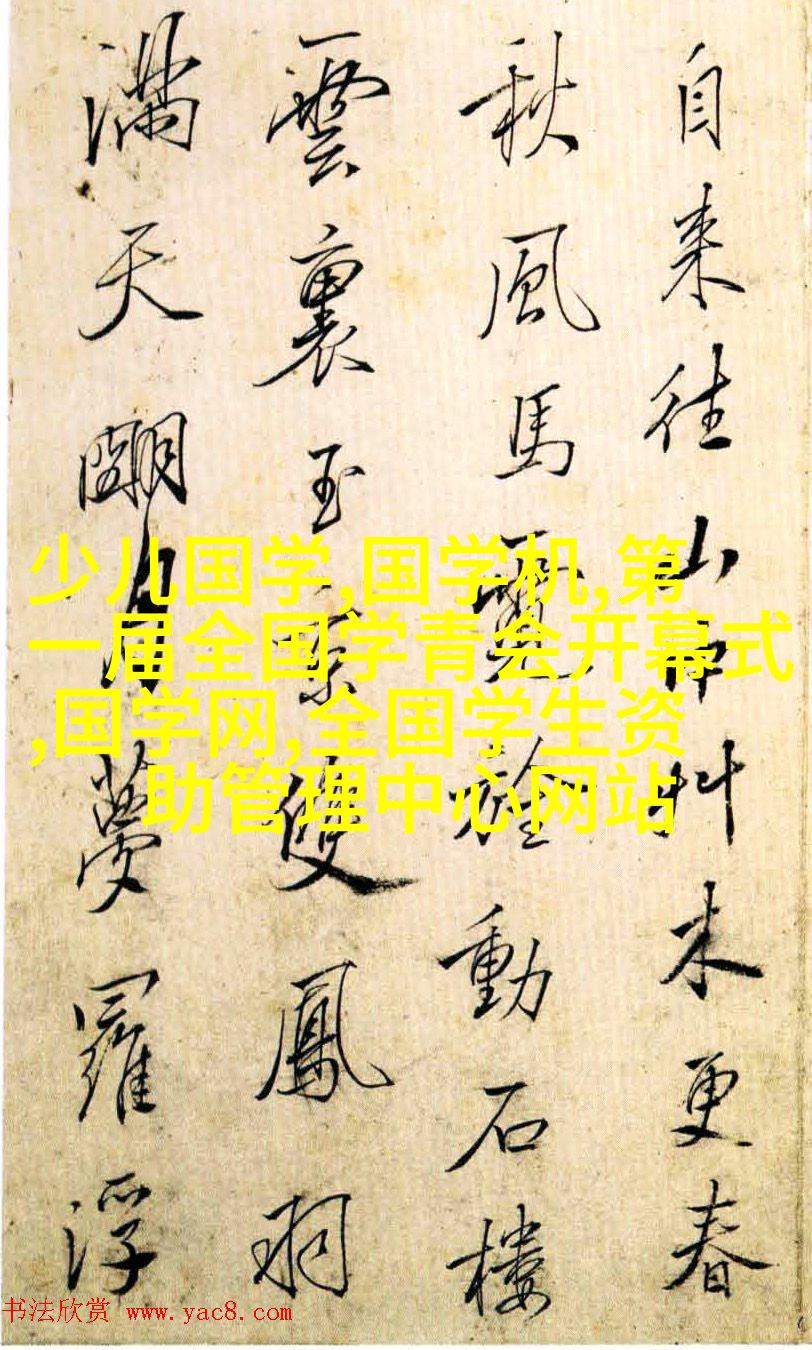 自来往山中艸木更春
秋風馬動石樓
雲裏玉京雙鳳羽
滿天朙月夢羅浮
少儿国学,国学机,第
一届全国学青会开幕式
,国学网,全国学生资
助管理中心网站
书法欣赏 www.yac8.com